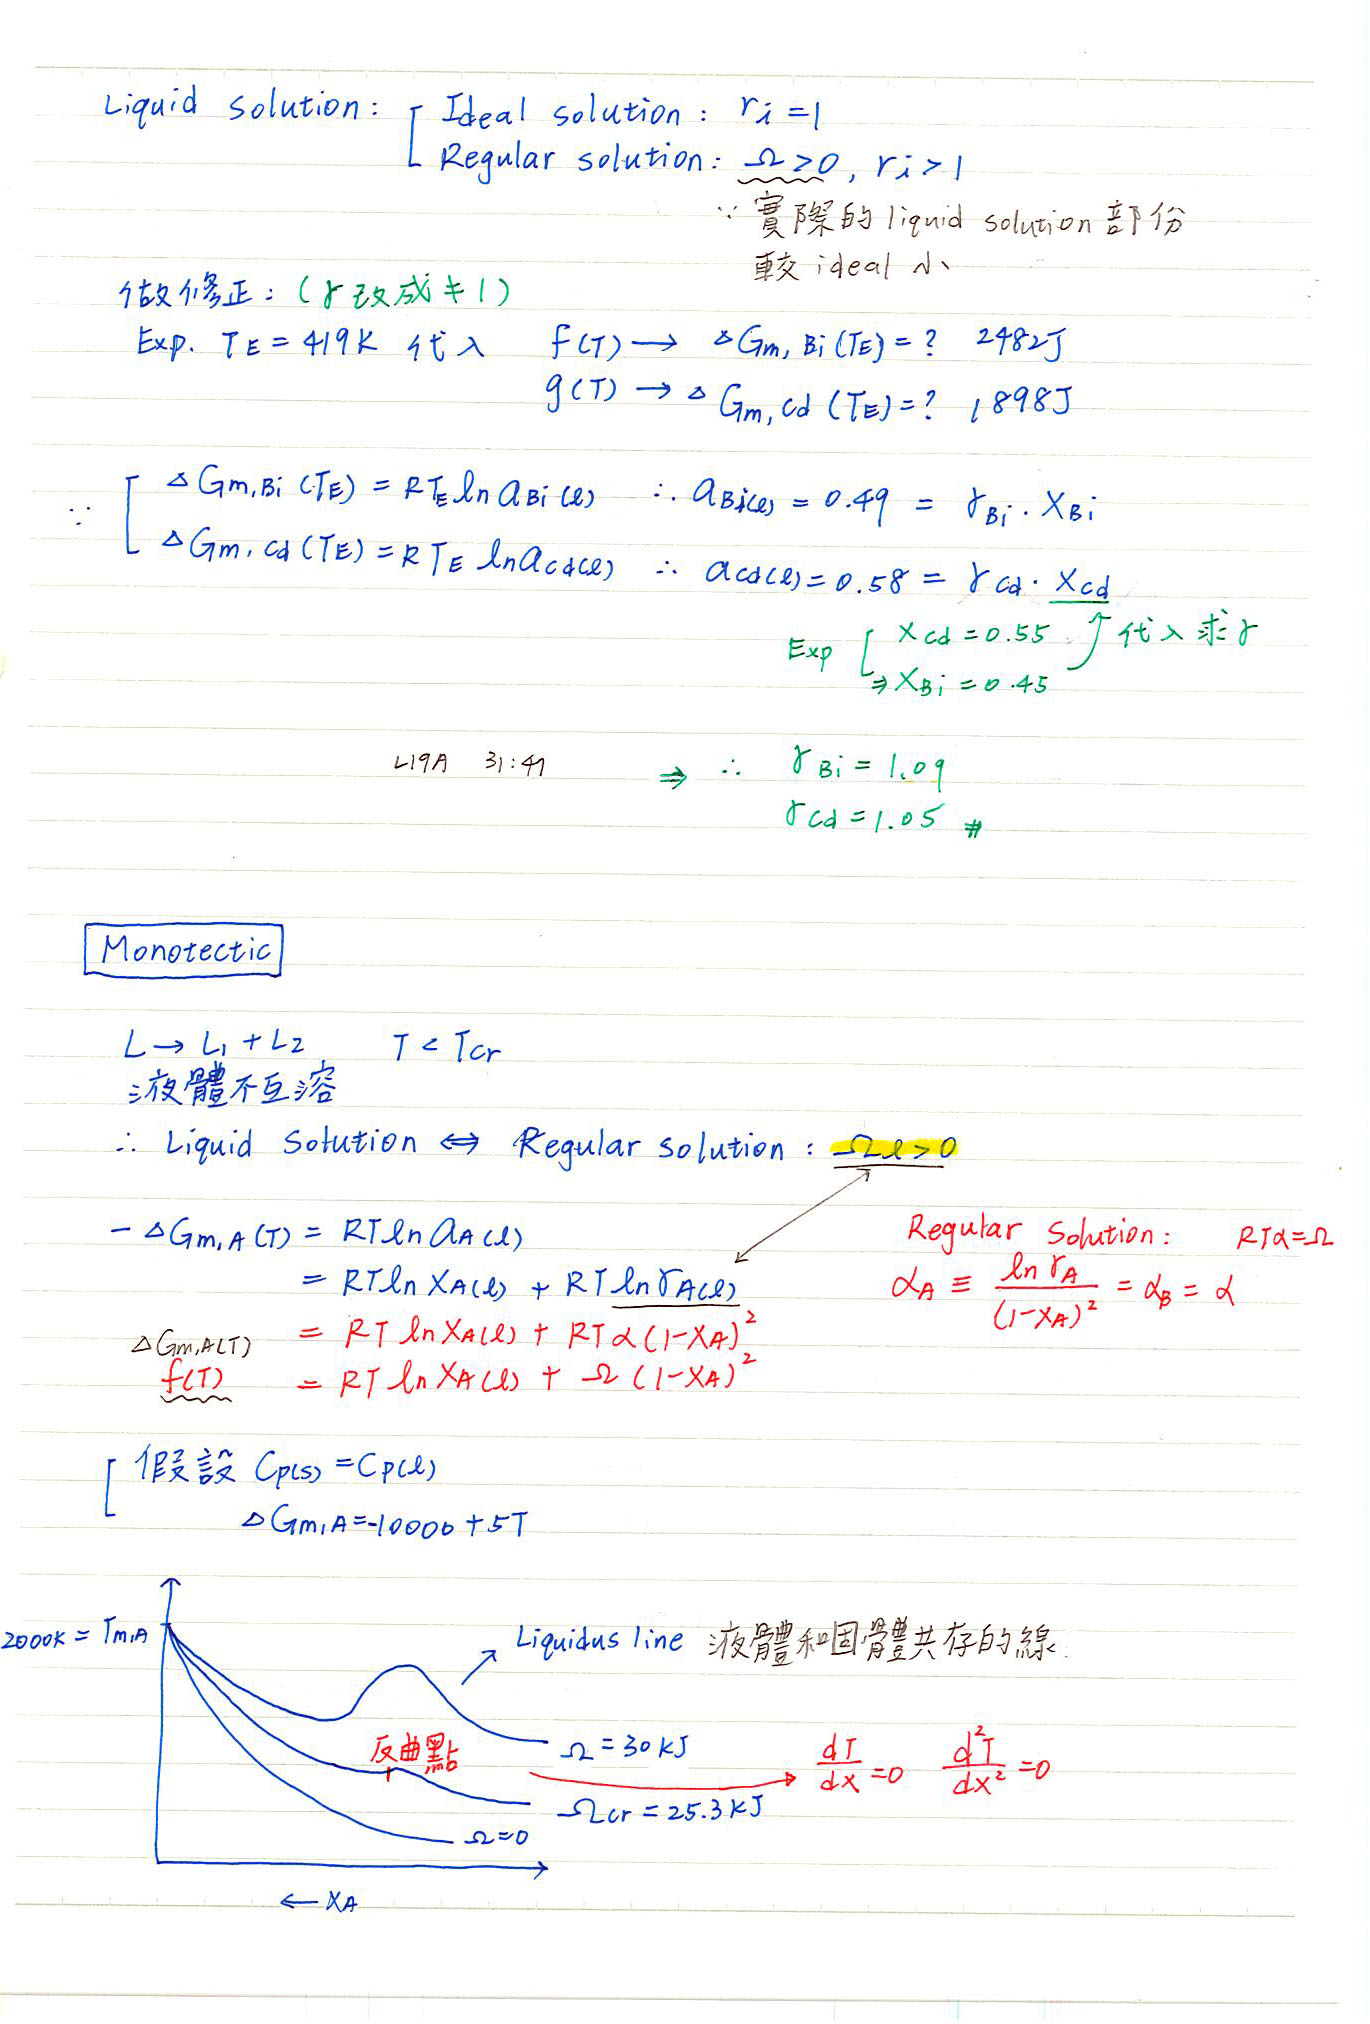 Liquid solution: Ideal solution: ri = 1
Regular solution: Ω>0, ri>1
∵ 實際的 liquid solution 部份
較 ideal 小
做修正: (γ改成≠1)
Exp. TE = 419K 代入 f(T) → ΔGm,Bi(TE) = ? 2482J
g(T) → ΔGm,Cd(TE) = ? 1898J
∵ ΔGm,Bi(TE) = RTE ln aBi(l) ∴ aBi(l) = 0.49 = γBi · XBi
ΔGm,Cd(TE) = RTE ln aCd(l) ∴ aCd(l) = 0.58 = γCd · XCd
Exp XCd = 0.55 代入求γ
⇒ XBi = 0.45
L19A 31:41 ⇒ ∴ γBi = 1.09
γCd = 1.05 #
Monotectic
L → L1 + L2 T < Tcr
液體不互溶
∴ Liquid Solution ⇔ Regular solution: Ωl>0
− ΔGm,A(T) = RT ln aA(l)
= RT ln XA(l) + RT ln γA(l)
ΔGm,A(T) = RT ln XA(l) + RTα(1−XA)²
f(T) = RT ln XA(l) + Ω(1−XA)²
Regular Solution: RTα=Ω
αA ≡ ln γA / (1−XA)² = αB = α
假設 Cp(s) = Cp(l)
ΔGm,A = -10000 + 5T
2000K = Tm,A
Liquidus line 液體和固體共存的線.
反曲點
Ω = 30 kJ
dT/dx = 0 d²T/dx² = 0
Ωcr = 25.3 kJ
Ω=0
← XA